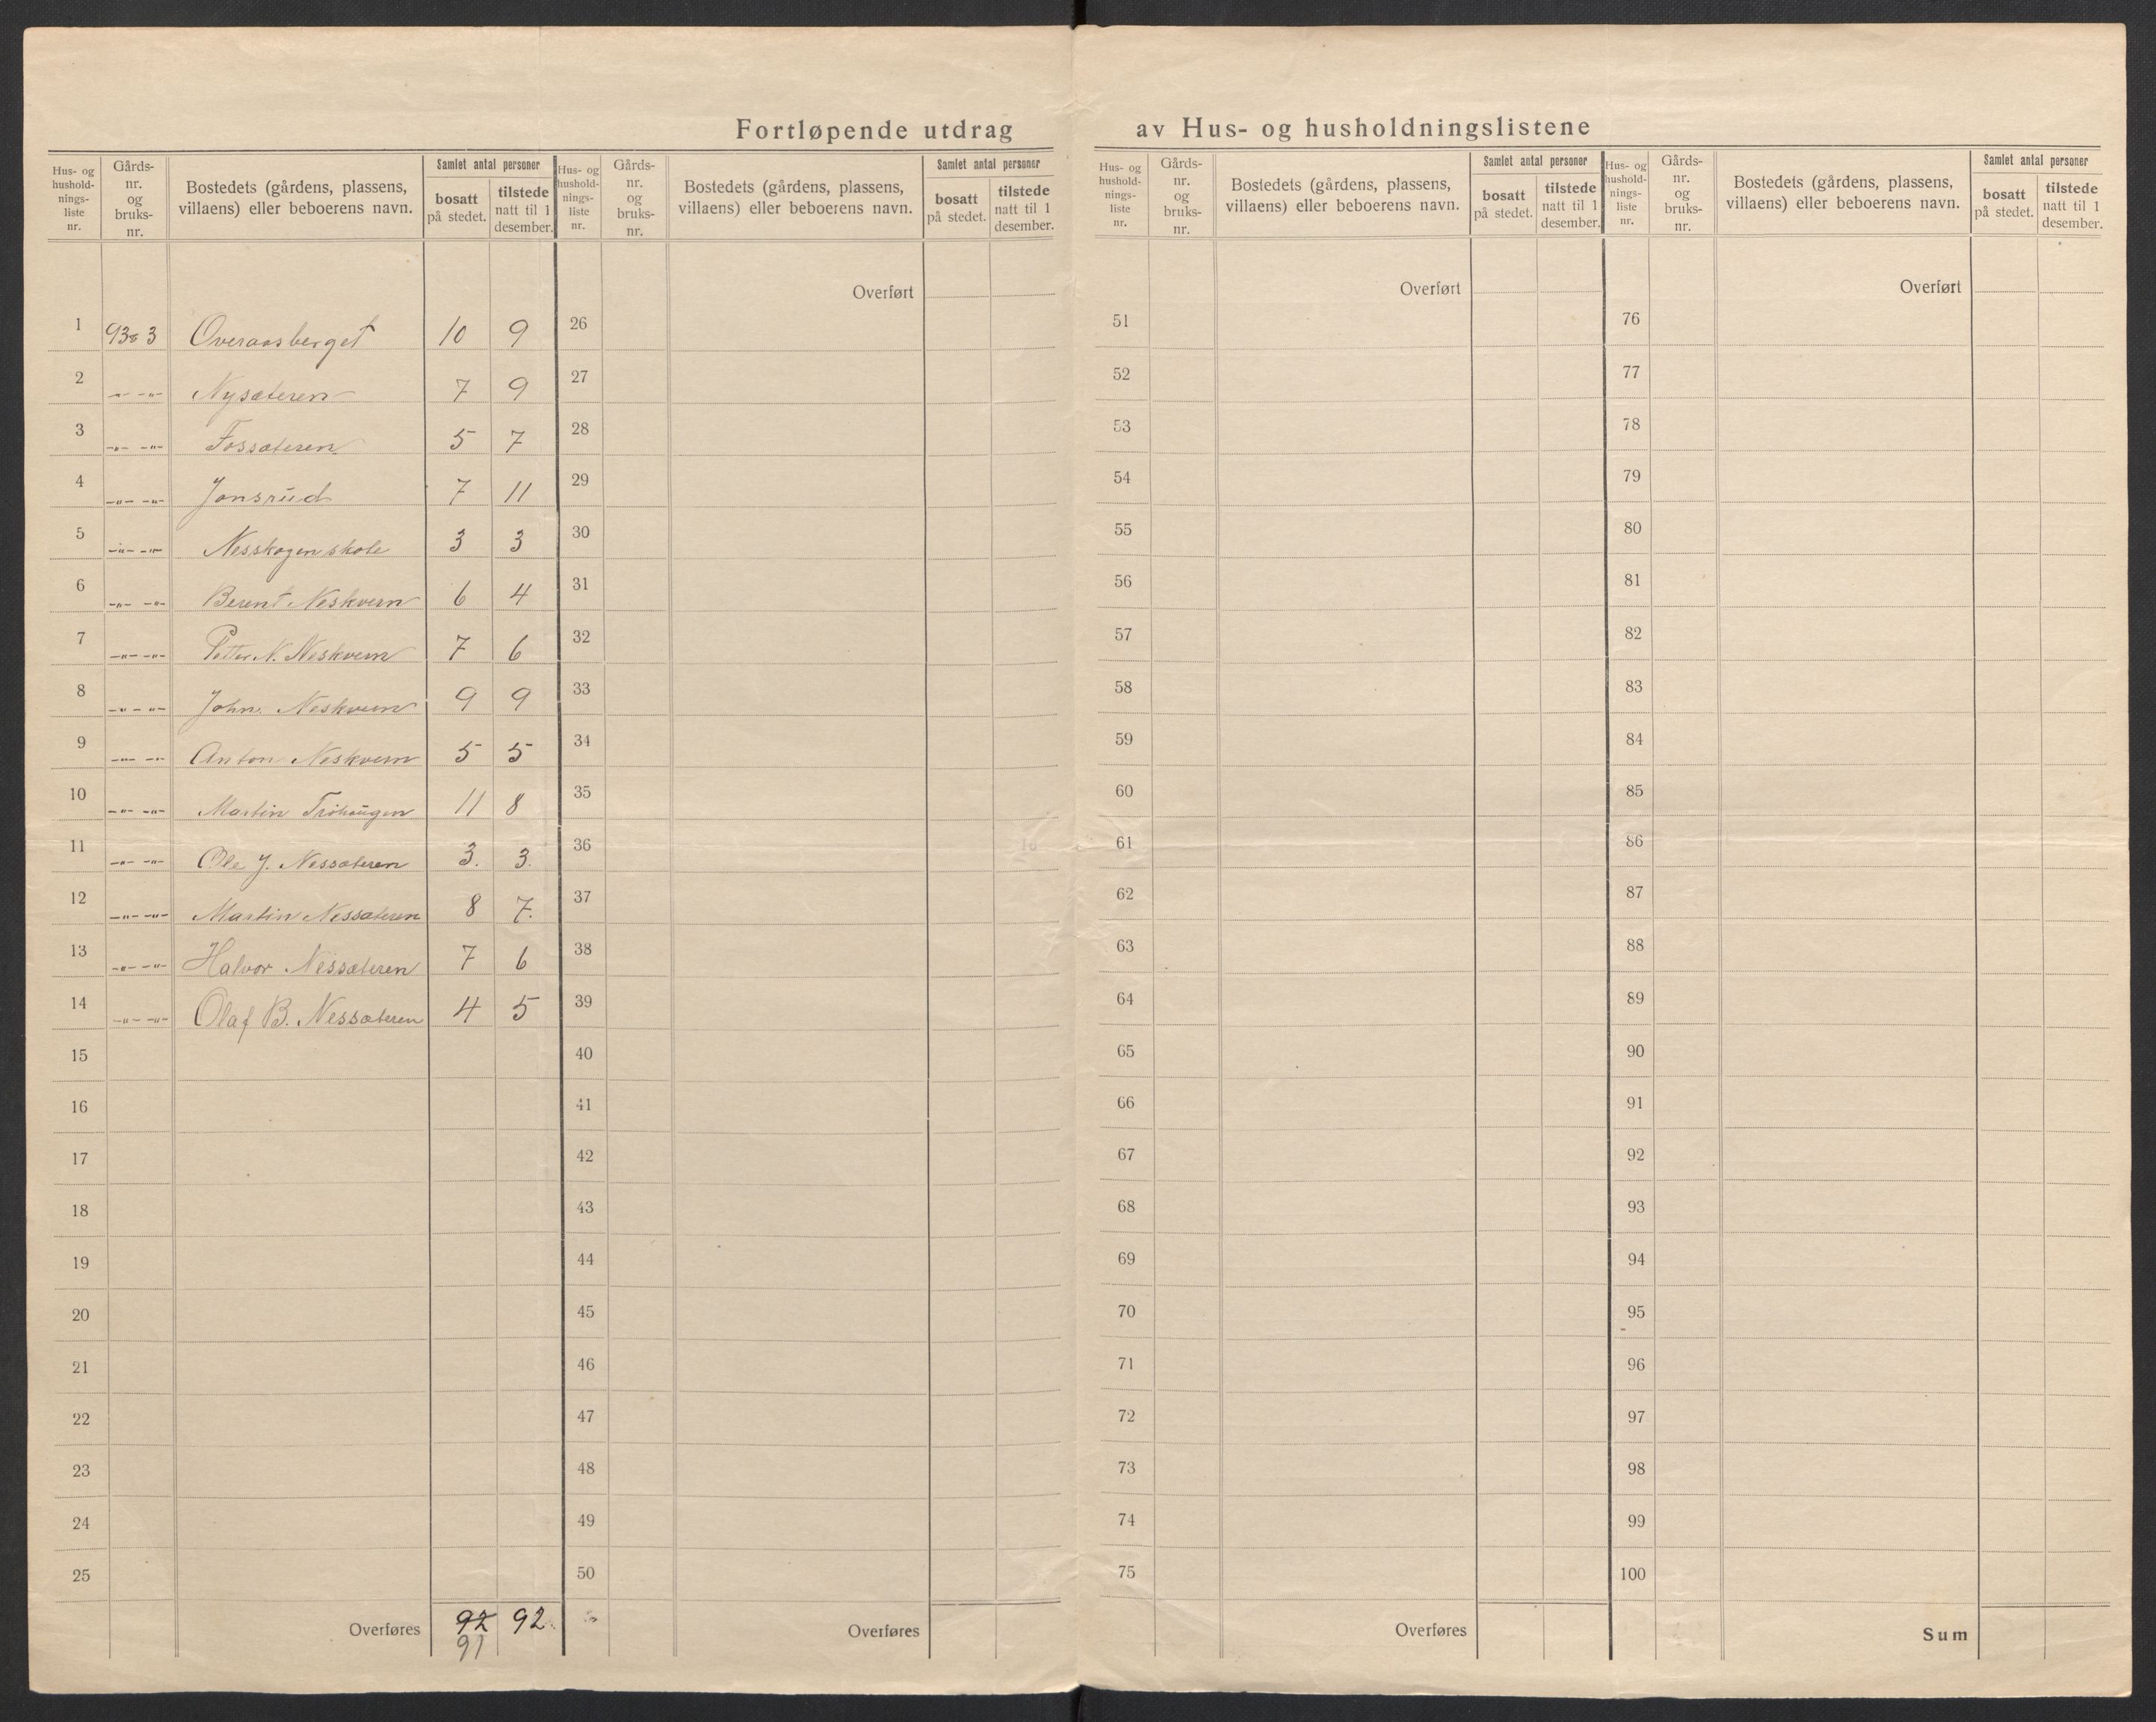 Fortløpende utdrag av Hus- og husholdningslistene
Hus- og hushold-nings-liste nr. Gårds-nr. og bruks-nr. Bostedets (gårdens, plassens, villaens) eller beboerens navn. Samlet antal personer bosatt på stedet. tilstede natt til 1 desember.
Hus- og hushold-nings-liste nr. Gårds-nr. og bruks-nr. Bostedets (gårdens, plassens, villaens) eller beboerens navn. Samlet antal personer bosatt på stedet. tilstede natt til 1 desember.
Hus- og hushold-nings-liste nr. Gårds-nr. og bruks-nr. Bostedets (gårdens, plassens, villaens) eller beboerens navn. Samlet antal personer bosatt på stedet. tilstede natt til 1 desember.
Hus- og hushold-nings-liste nr. Gårds-nr. og bruks-nr. Bostedets (gårdens, plassens, villaens) eller beboerens navn. Samlet antal personer bosatt på stedet. tilstede natt til 1 desember.
Overført Overført Overført
1 93 3 Overaasberget 10 9 26 51 76
2 -"- -"- Nysæteren 7 9 27 52 77
3 -"- -"- Fossæteren 5 7 28 53 78
4 -"- -"- Jonsrud 7 11 29 54 79
5 -"- -"- Nesskogen skole 3 3 30 55 80
6 -"- -"- Berent Neskvern 6 4 31 56 81
7 -"- -"- Petter N. Neskvern 7 6 32 57 82
8 -"- -"- John Neskvern 9 9 33 58 83
9 -"- -"- Anton Neskvern 5 5 34 59 84
10 -"- -"- Martin 11 8 35 60 85
11 -"- -"- Ole J. Nessæteren 3. 3. 36 61 86
12 -"- -"- Martin Nessæteren 8 7. 37 62 87
13 -"- -"- Halvor Nessæteren 7 6 38 63 88
14 -"- -"- Olaf B. Nessæteren 4 5 39 64 89
15 40 65 90
16 41 66 91
17 42 67 92
18 43 68 93
19 44 69 94
20 45 70 95
21 46 71 96
22 47 72 97
23 48 73 98
24 49 74 99
25 50 75 100
Overføres 92 92. Overføres Overføres Sum
91